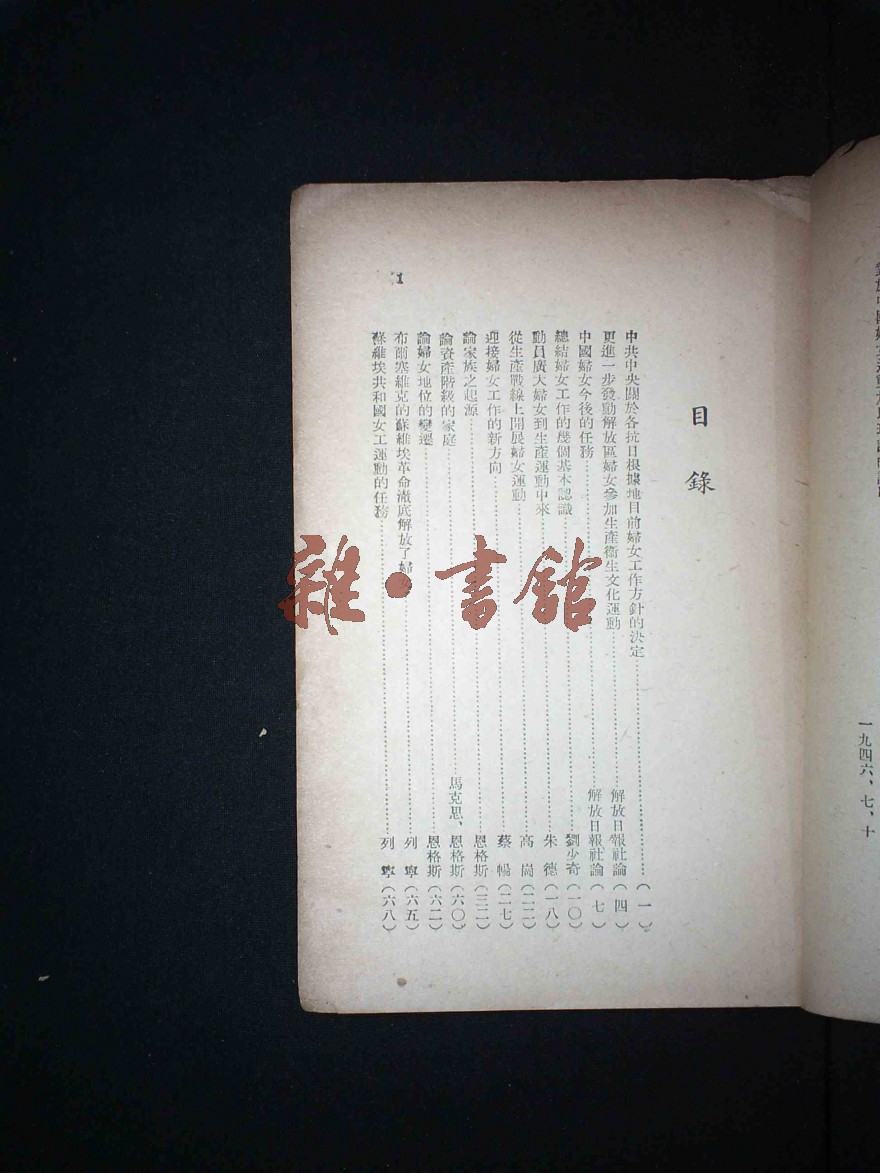 一九四六、七、十
目錄
中共中央關於各抗日根據地目前婦女工作方針的決定……(一)
更進一步發動解放區婦女參加生產衞生文化運動……解放日報社論(四)
中國婦女今後的任務……解放日報社論(七)
總結婦女工作的幾個基本認識……劉少奇(一〇)
動員廣大婦女到生產運動中來……朱德(一八)
從生產戰線上開展婦女運動……高崗(二二)
迎接婦女工作的新方向……蔡暢(二七)
論家族之起源……恩格斯(三二)
論資產階級的家庭……馬克思、恩格斯(六〇)
論婦女地位的變遷……恩格斯(六二)
布爾塞維克的蘇維埃革命澈底解放了婦女……列寧(六五)
蘇維埃共和國女工運動的任務……列寧(六八)
1
雜·書館